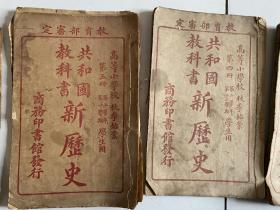 教育部審定
高等小學校 秋季始業
第五冊 學生用
共和國
教科書
新歷史
商務印書館發行
教育部審定
高等小學校 秋季始業
第四冊 學生用
共和國
教科書
新歷史
商務印書館發行